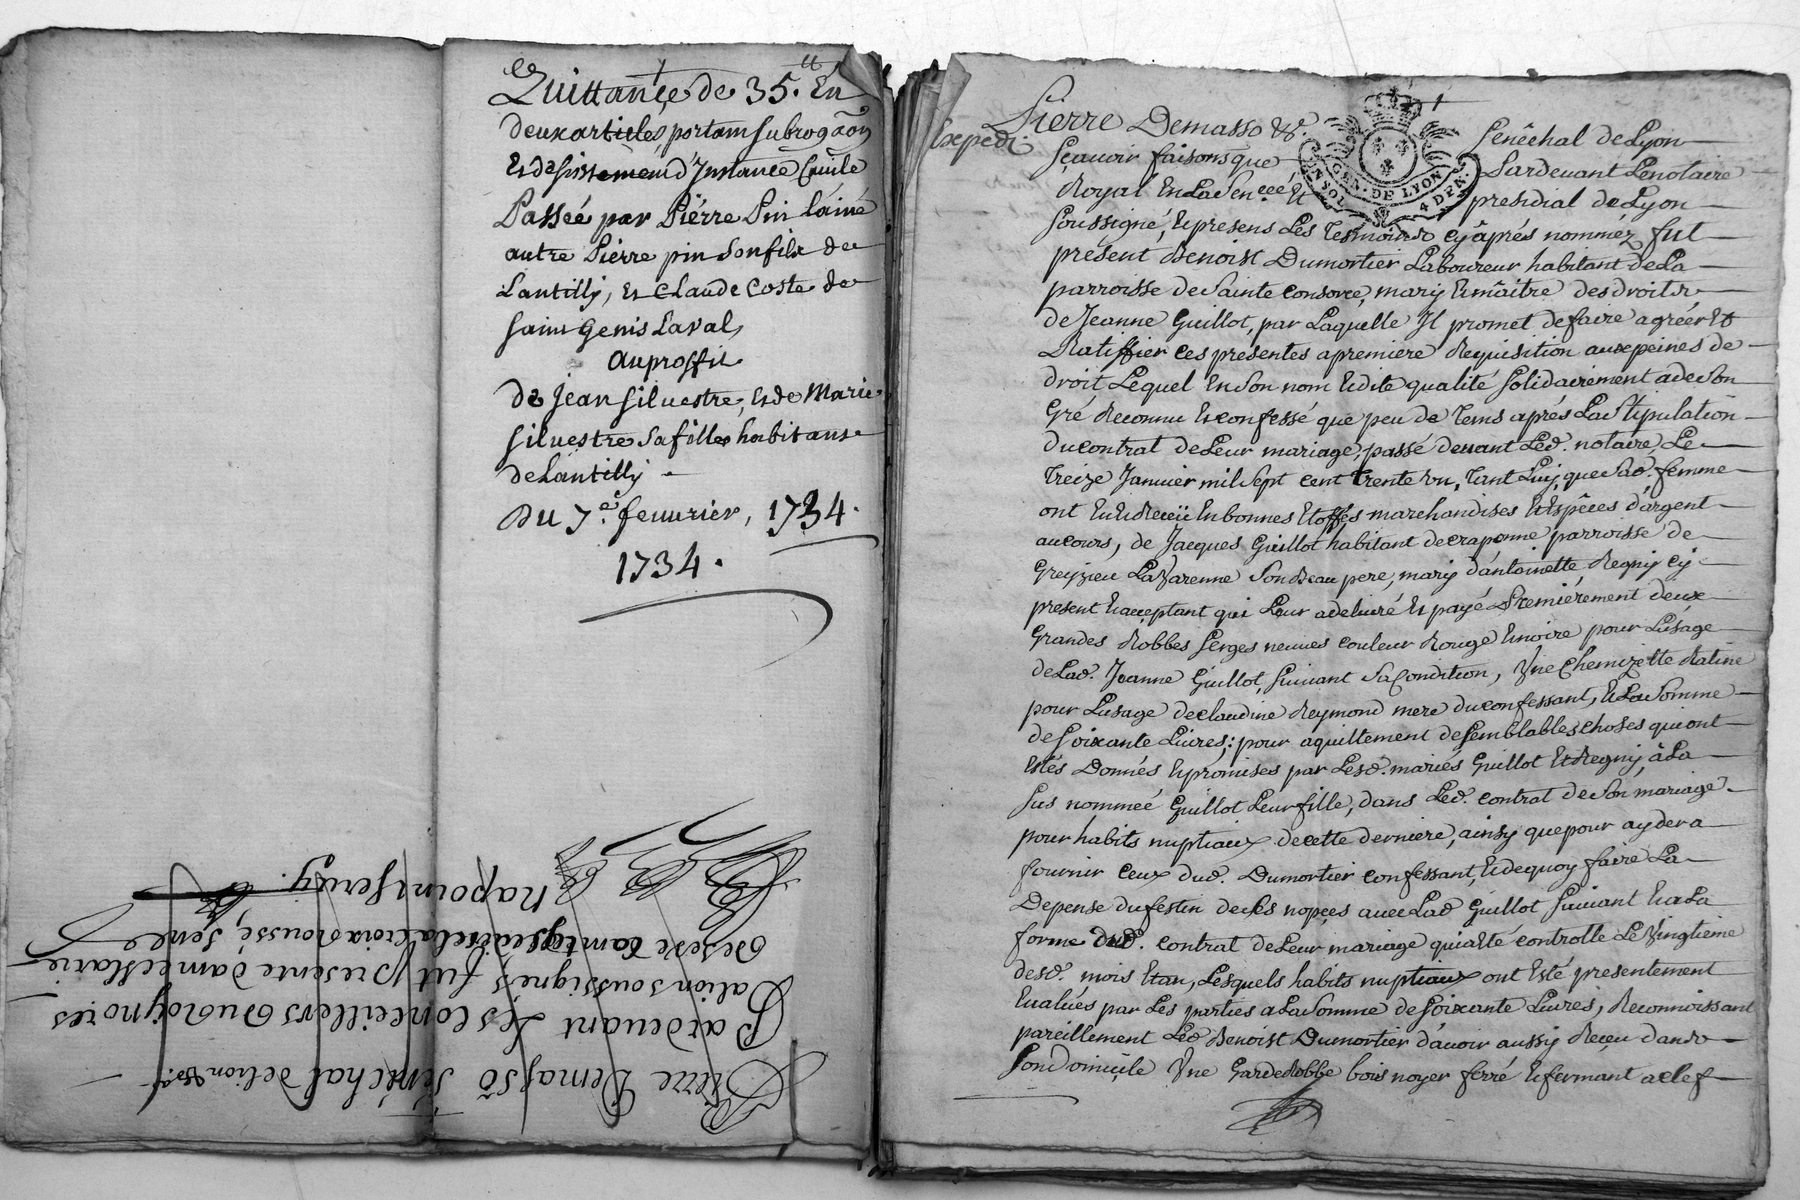 Quittance de 35.tt En
deux articles, portam subrogãon
Et desistement d'Instance Civile
Passeé par Piérre Pin láiné
autre Piérre pin son fils de
Lantilly, Et Claude Coste de
saint Genis Laval,
Auproffit
De Jean Siluestre, Et de Marie
Siluestre sa fille habitans
de Lantilly
Du 7.e feuurier, 1734.
1734.
na point seruy.
Pardeuant Les Conseillers Du Roy no.res
Dalion soussignes, fut Presente dame Marie
Pierre Demassõ Senéchal de lion &.a
Expedi
Pierre Demasso &.
Senêchal de Lyon
Sçauoir faisons que
Pardeuant Le notaire
Royal En La Sen.ceé Et
presidial de Lyon
GEN. DE LYON
4 DEN.
soussigné, Et presens Les Tesmoins cy âprés nomméz fut
présent Benoist Dumortier Laboureur habitant de La
parroisse de Sainte Consorce, mary Et maître des droits
de Jeanne Guillot, par Laquelle Il promet de faire agréer Et
Ratiffier ces presentes a premiere Requisition aux peines de
droit, Lequel En Son nom Et dite qualité Solidairement a de Son
Gré Reconnu Et confessé que peu de Tems aprés La Stipulation
du contrat de Leur mariage, passé deuant Led. notaire, Le
Treize Januier mil Sept cent Trente un, Tant Luy, que Sad. femme
ont Eu Et Receü En bonnes Etoffes marchandises Et Espêces d'argent
au cours, de Jacques Guillot habitant de craponne parroisse de
Greyzieu La Varenne Son Beau pere, mary d'antoinette Regny cy
present Et acceptant qui Leur a deliuré Et payé Premiérement deux
Grandes Robbes Serges neuues couleur Rouge Et noire pour Lusage
de Lad. Jeanne Guillot, Suiuant Sa Condition, Vne Chemizette Ratine
pour Lusage de claudine Reymond mere du confessant, Et La Somme
de Soixante Liures; pour aquittement de Semblables choses qui ont
Estés Donnés Et promises par Lesd. mariés Guillot Et Regny, â La
Sus nommeé Guillot Leur fille, dans Led. contrat de Son mariage
pour habits nuptiaux de cette derniere, ainsy que pour ayder a
fournir Ceux dud. Dumortier confessant, Et dequoy faire La
Depense du festin de Ses nopçes auec Lad Guillot Suiuant Et a La
forme dud. contrat de Leur mariage qui a Eté controlle Le Vingtieme
desd. mois Et an, Lesquels habits nuptiaux ont Esté presentement
Eualués par Les parties a La Somme de Soixante Liures, Reconnoissant
pareillement Led Benoist Dumortier d'auoir aussy Reçeu dans
Son Domiçile Vne Garde Robbe bois noyer ferré Et fermant a clef